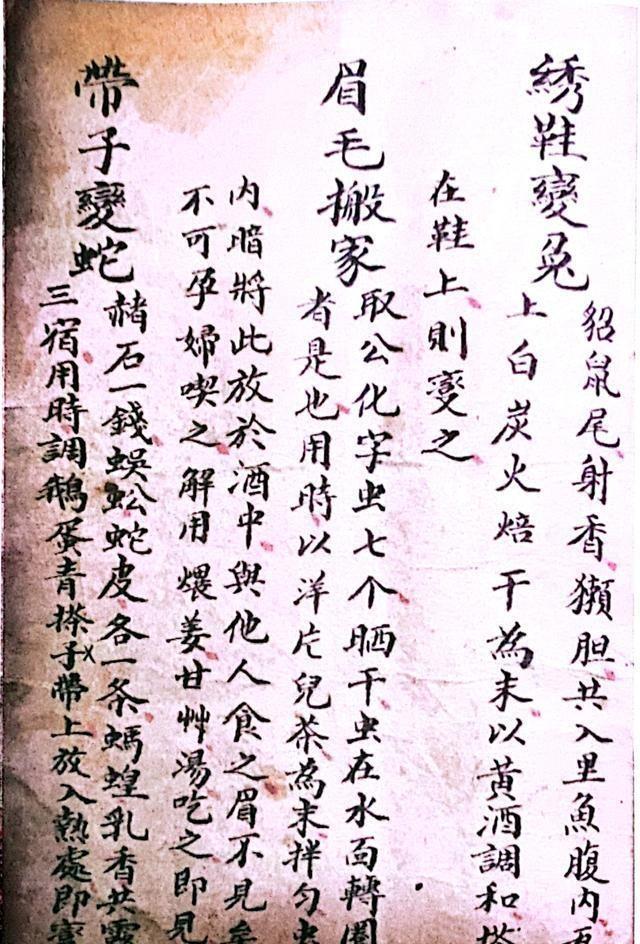 綉鞋變兔
貂鼠尾射香獺胆共入里魚腹内瓦
上白炭火焙干為末以黄酒調和搽
在鞋上則變之
眉毛搬家
取公化字虫七个晒干虫在水面轉圈
者是也用時以洋片兒茶為末拌匀虫
内暗將此放於酒中與他人食之眉不見矣
不可孕婦喫之解用煨姜甘艸湯吃之即見
帶子變蛇
赭石一錢蜈蚣蛇皮各一条螞蝗乳香共露
三宿用時調鵝蛋青搽子帶上放入熱處即變